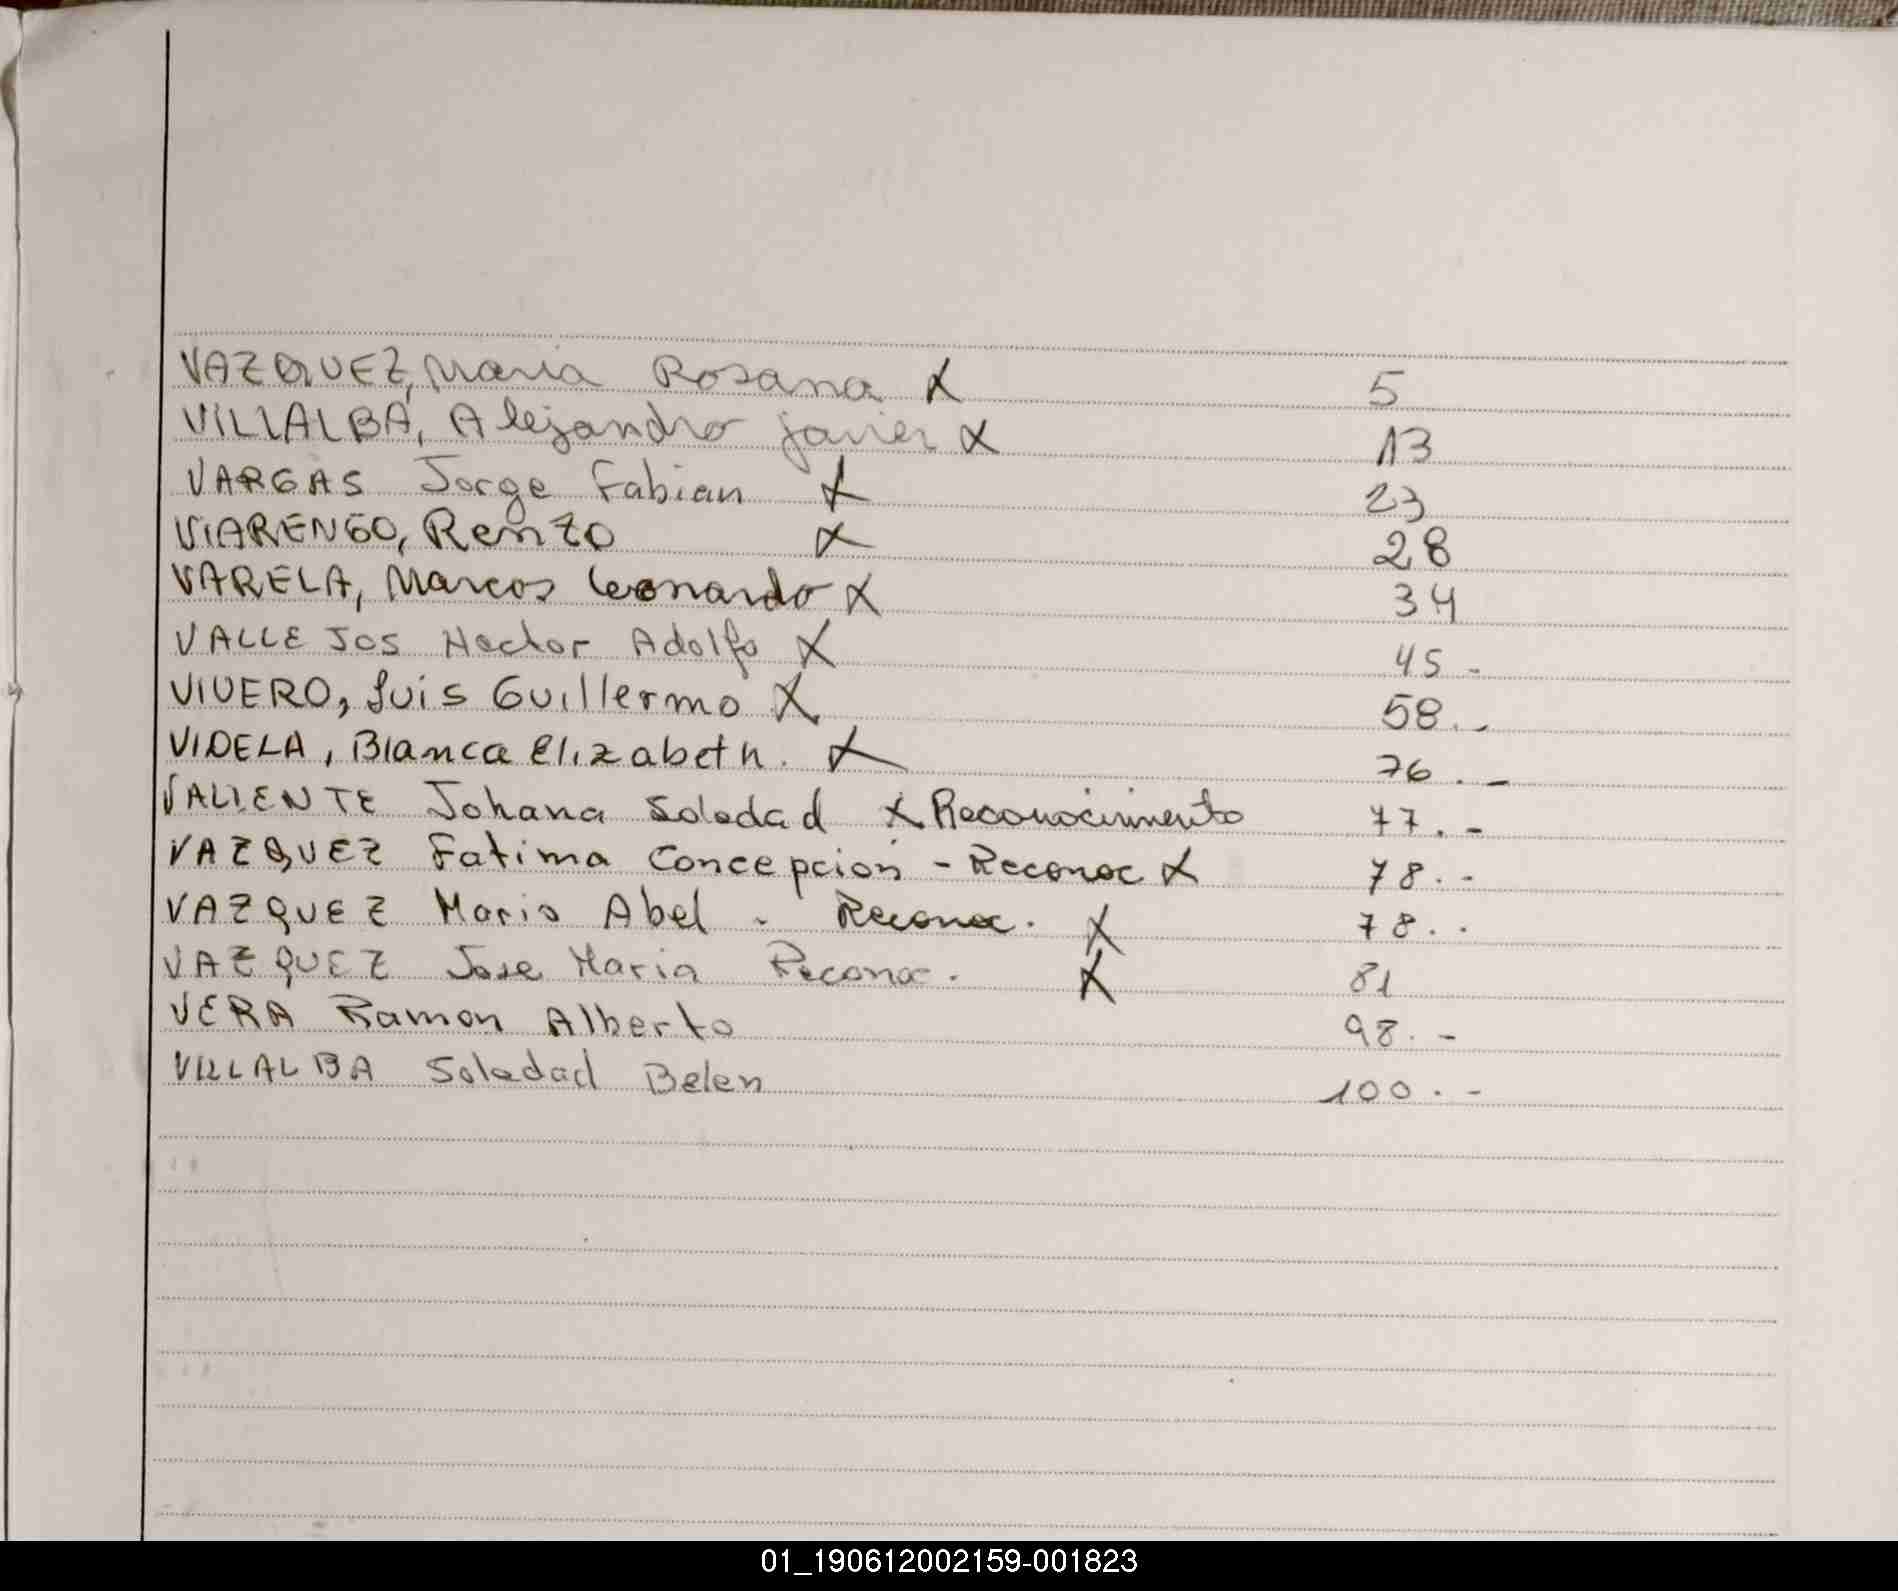 VAZQUEZ, Maria Rosana X 5
VILLALBA, Alejandro javier X 13
VARGAS Jorge Fabian X 23
VIARENGO, Renzo X 28
VARELA, Marcos Leonardo X 34
VALLEJOS Hector Adolfo X 45.-
VIVERO, Luis Guillermo X 58.-
VIDELA, Blanca Elizabeth. X 76.-
VALIENTE Johana Soledad X Reconocimiento 77.-
VAZQUEZ Fatima Concepcion - Reconoc X 78.-
VAZQUEZ Mario Abel - Reconoc. X 78..
VAZQUEZ Jose Maria Reconoc. X 81
VERA Ramon Alberto 98.-
VILLALBA Soledad Belen 100.-
01_190612002159-001823